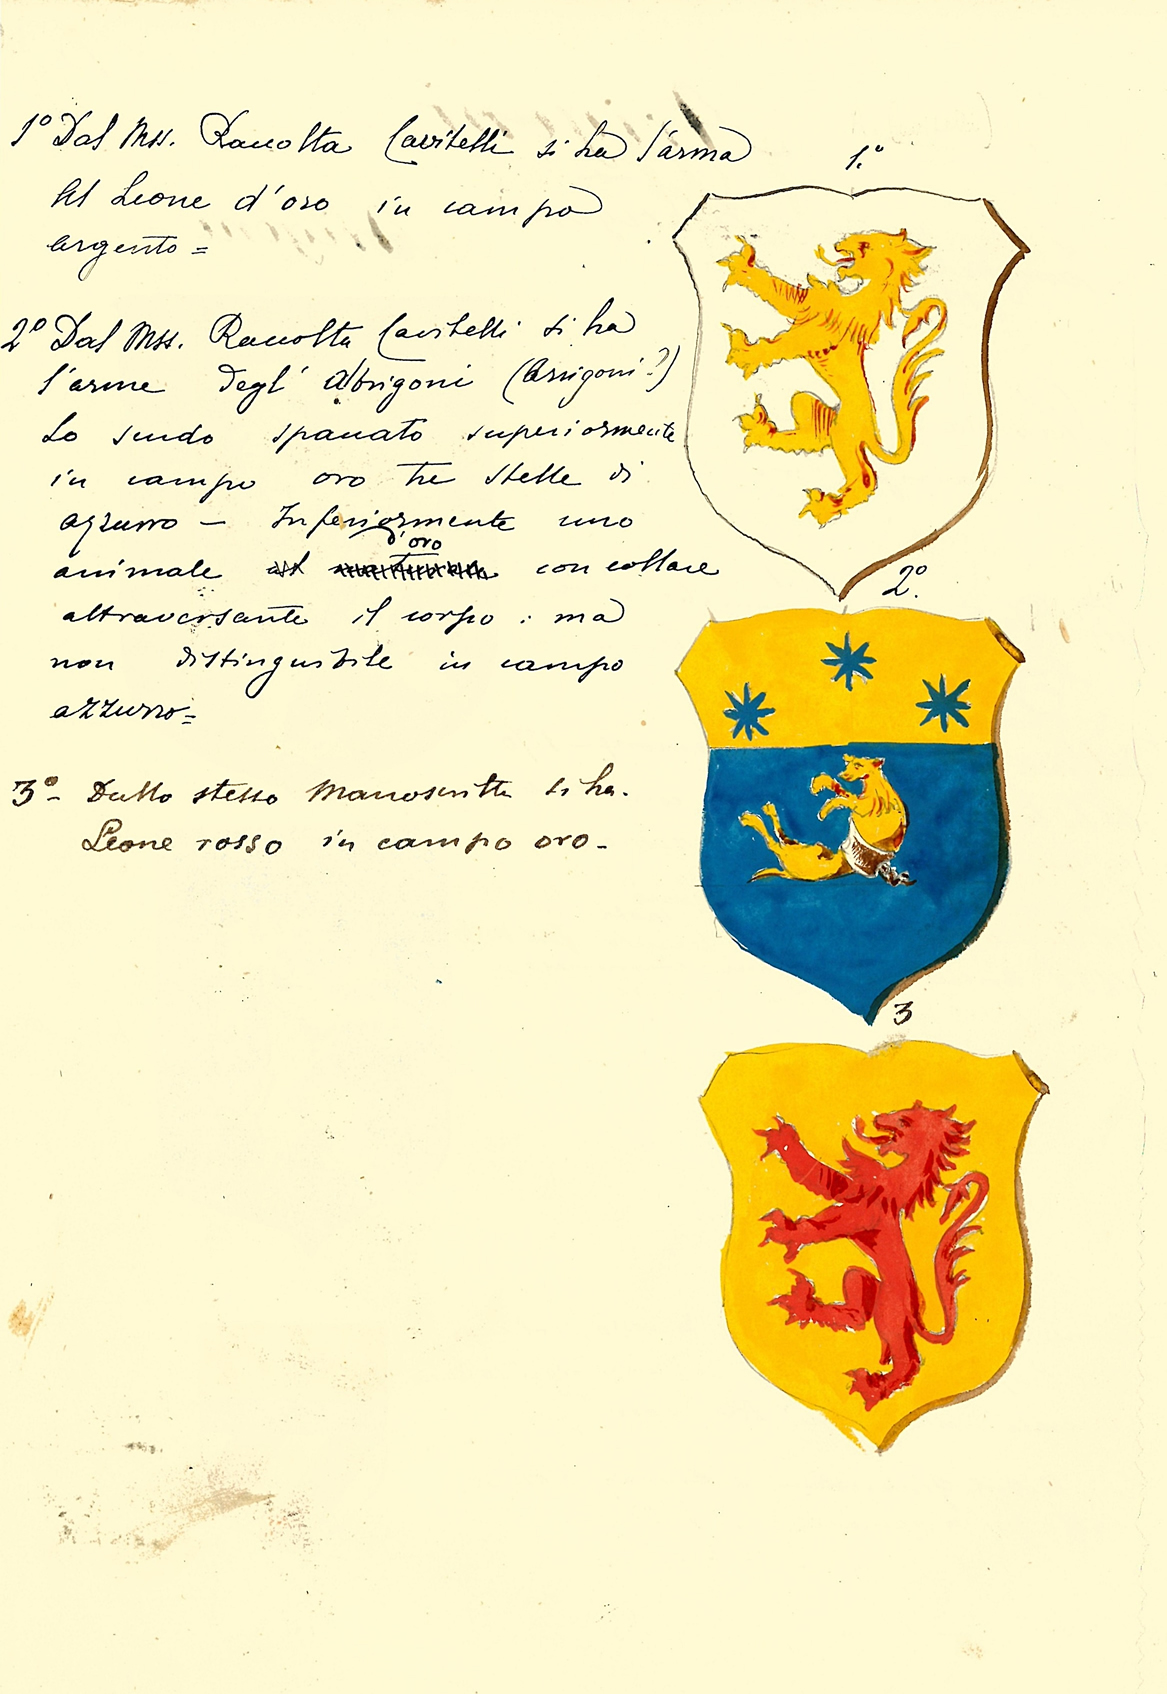 1º Dal Mss. Racolta Cavitelli si ha l'arma
del Leone d'oro in campo
argento =
1.º
2º Dal Mss. Racolta Cavitelli si ha
l'arme degl' Abrigoni (Arrigoni?)
Lo scudo spacato superiormente
in campo oro tre stelle di
azzurro — Inferiormente uno
animale d'oro con collare
attraversante il corpo : ma
non distinguibile in campo
azzurro =
2º.
3º- Dallo stesso Manoscritto si ha.
Leone rosso in campo oro -
3